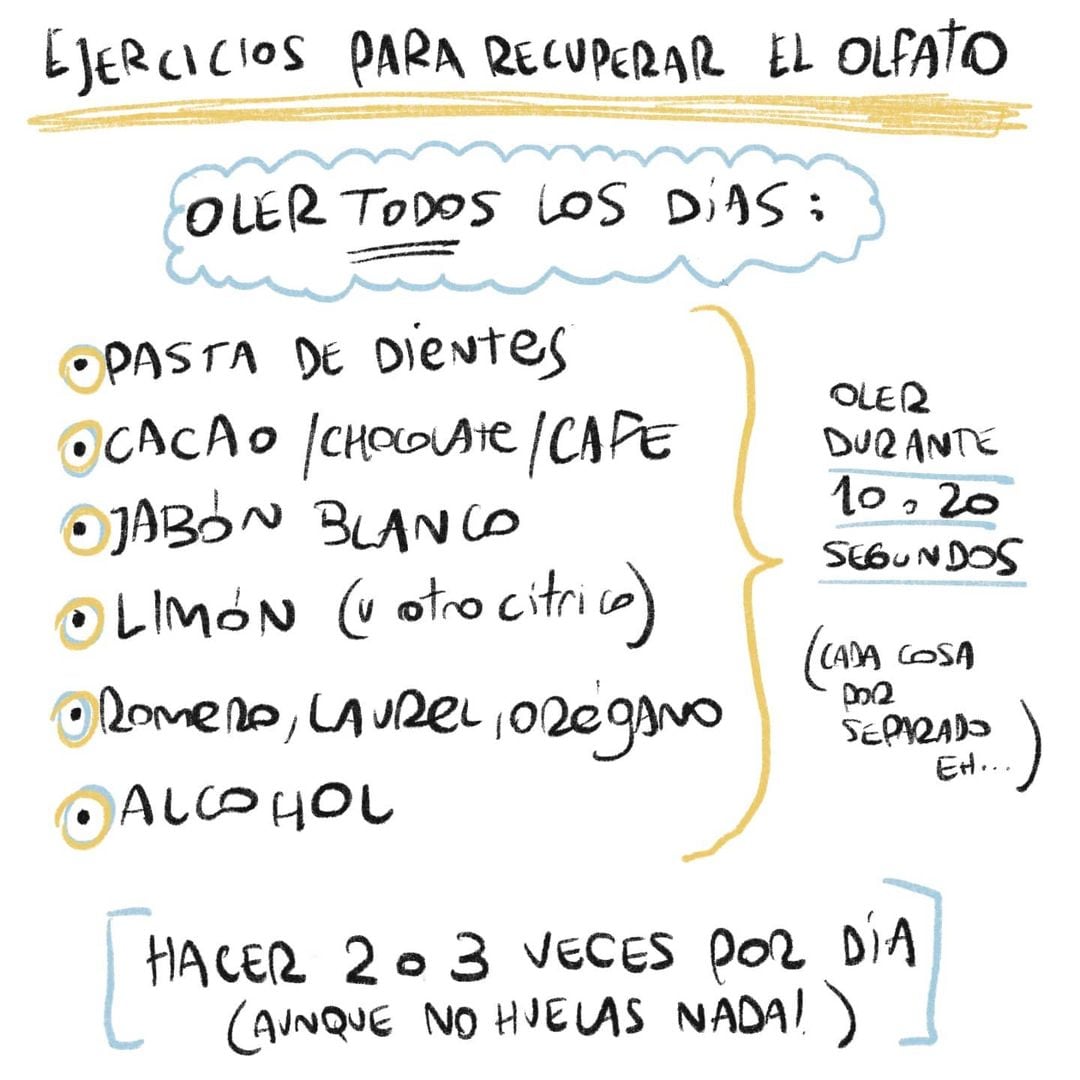 EJERCICIOS PARA RECUPERAR EL OLFATO
OLER TODOS LOS DÍAS:
PASTA DE DIENTES
CACAO /CHOCOLATE/CAFE
JABÓN BLANCO
LIMÓN (u otro cítrico)
ROMERO, LAUREL, ORÉGANO
ALCOHOL
OLER
DURANTE
10 a 20
SEGUNDOS
(CADA COSA
POR
SEPARADO
EH...)
HACER 2 o 3 VECES POR DÍA
(AUNQUE NO HUELAS NADA!)